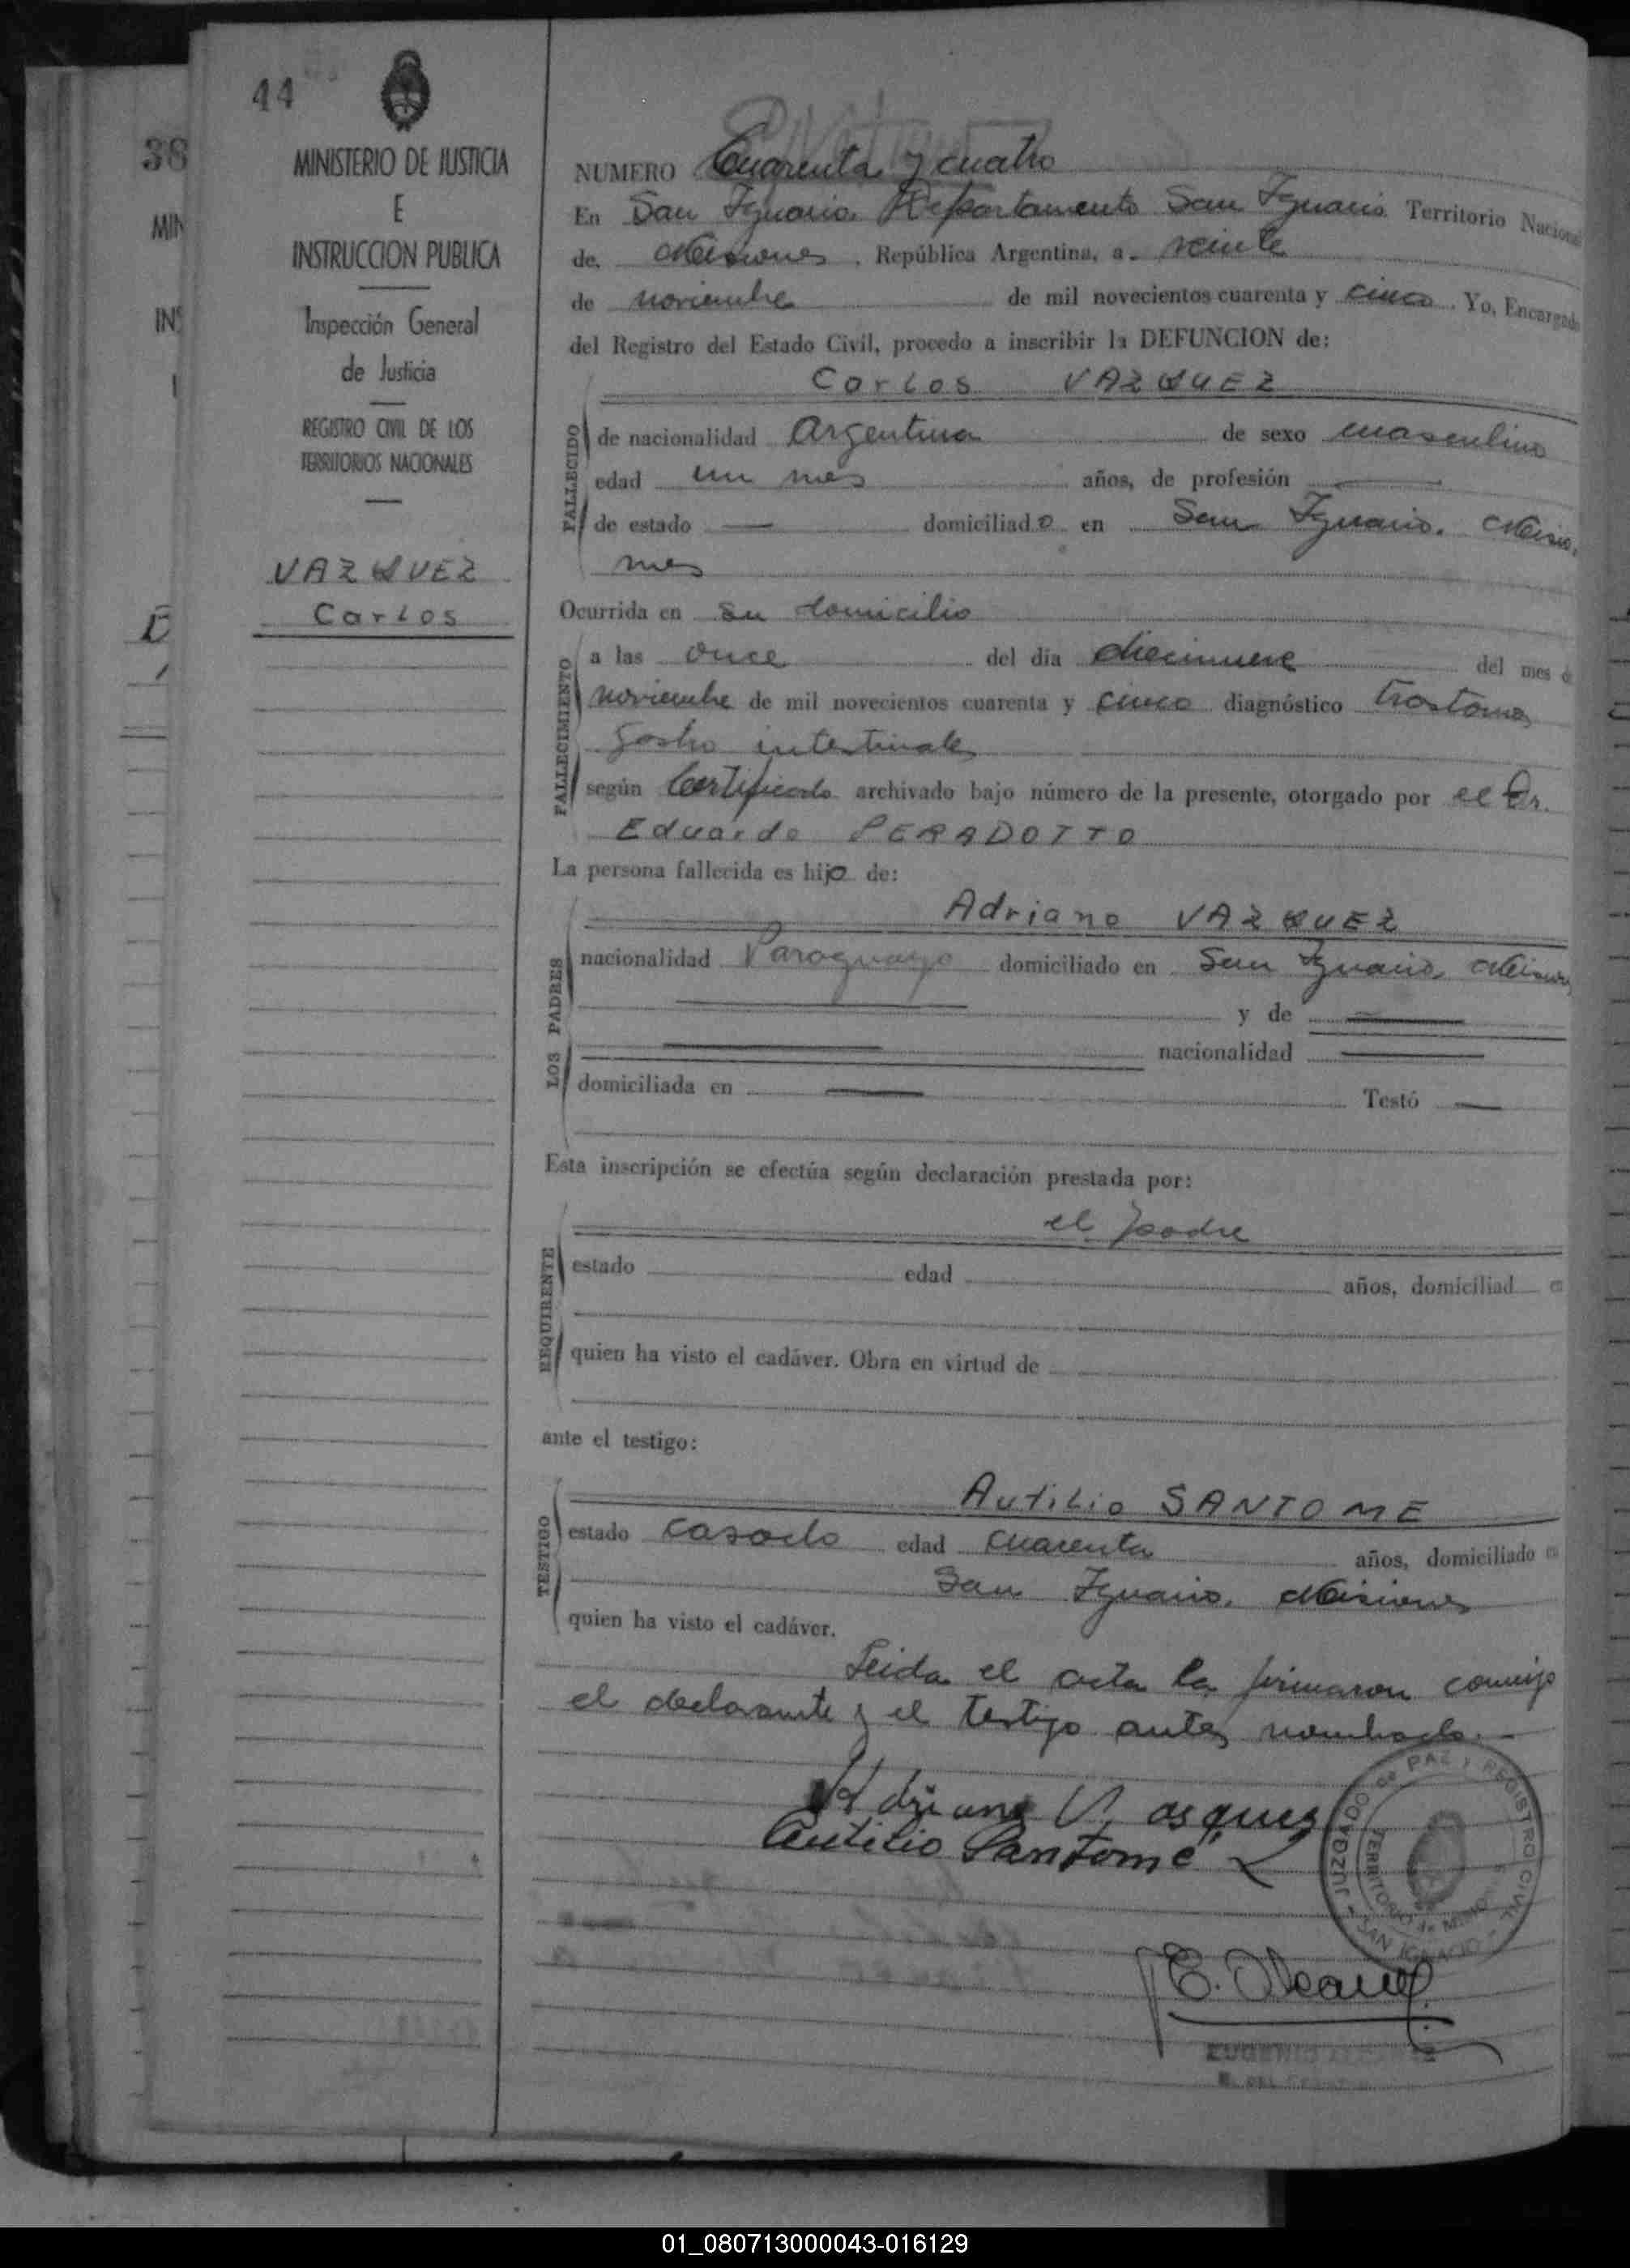 44
38
MINISTERIO DE JUSTICIA
E
INSTRUCCION PUBLICA
Inspección General
de Justicia
REGISTRO CIVIL DE LOS
TERRITORIOS NACIONALES
VAZQUEZ
Carlos
NUMERO Cuarenta y cuatro
En San Ignacio Departamento San Ignacio Territorio Nacional
de Misiones, República Argentina, a veinte
de noviembre de mil novecientos cuarenta y cinco Yo, Encargado
del Registro del Estado Civil, procedo a inscribir la DEFUNCION de:
Carlos VAZQUEZ
FALLECIDO
de nacionalidad Argentina de sexo masculino
edad un mes años, de profesión —
de estado — domiciliado en San Ignacio. Misio-
nes
Ocurrida en su domicilio
FALLECIMIENTO
a las once del día diecinueve del mes de
noviembre de mil novecientos cuarenta y cinco diagnóstico trastornos
gastro intestinales
según Certificado archivado bajo número de la presente, otorgado por el Dr.
Eduardo PERADOTTO
La persona fallecida es hijo de:
LOS PADRES
Adriano VAZQUEZ
nacionalidad Paraguayo domiciliado en San Ignacio, Misiones
— y de —
— nacionalidad —
domiciliada en — Testó —
Esta inscripción se efectúa según declaración prestada por:
REQUIRENTE
el padre
estado edad años, domiciliad en
quien ha visto el cadáver. Obra en virtud de
ante el testigo:
TESTIGO
Autilio SANTOME
estado casado edad cuarenta años, domiciliado en
San Ignacio. Misiones
quien ha visto el cadáver.
Leida el acta la firmaron conmigo
el declarante y el testigo antes nombrado.—
Adriano Vasquez
Autilio Santomé
JUZGADO de PAZ y REGISTRO CIVIL
TERRITORIO de MISIONES
- SAN IGNACIO -
EUGENIO
01_080713000043-016129